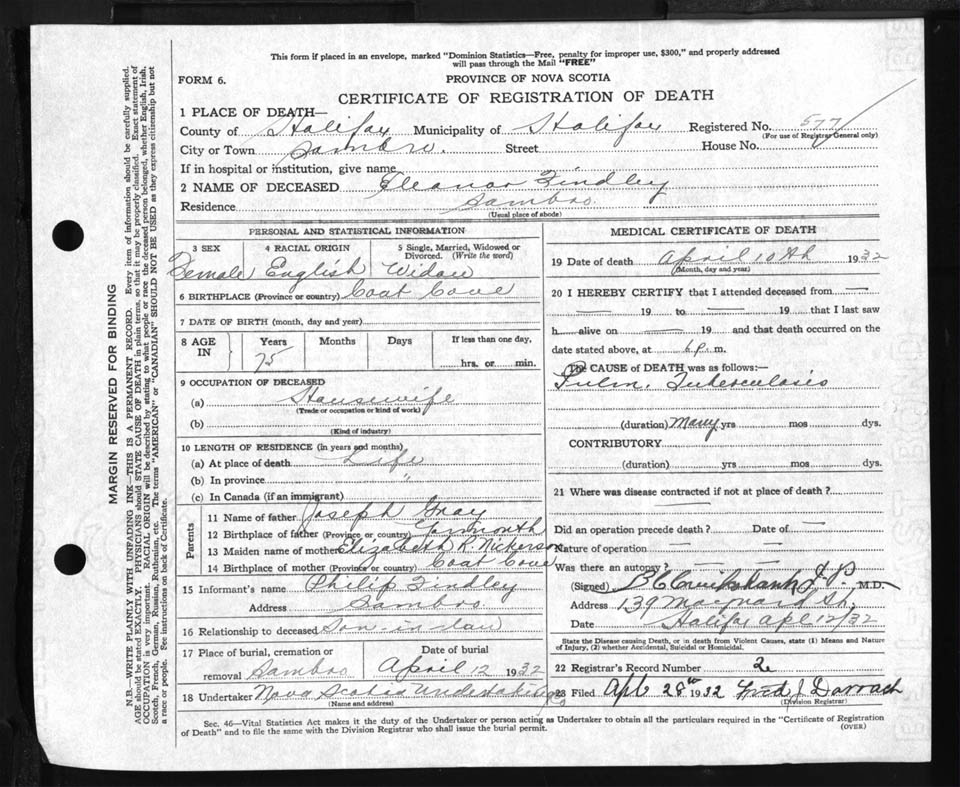 This form if placed in an envelope, marked "Dominion Statistics—Free, penalty for improper use, $300," and properly addressed
will pass through the Mail "FREE"
FORM 6.
PROVINCE OF NOVA SCOTIA
CERTIFICATE OF REGISTRATION OF DEATH
1 PLACE OF DEATH—
County of Halifax Municipality of Halifax Registered No. 577
(For use of Registrar General only)
City or Town Sambro. Street House No.
If in hospital or institution, give name
2 NAME OF DECEASED Eleanor Findley
Residence Sambro
(Usual place of abode)
PERSONAL AND STATISTICAL INFORMATION
3 SEX 4 RACIAL ORIGIN 5 Single, Married, Widowed or
Divorced. (Write the word)
Female English Widow
6 BIRTHPLACE (Province or country) Coat Cove
7 DATE OF BIRTH (month, day and year)
8 AGE IN Years Months Days If less than one day,
75 hrs. or min.
9 OCCUPATION OF DECEASED
(a) Housewife
(Trade or occupation or kind of work)
(b)
(Kind of industry)
10 LENGTH OF RESIDENCE (in years and months)
(a) At place of death Life
(b) In province "
(c) In Canada (if an immigrant)
Parents
11 Name of father Joseph Gray
12 Birthplace of father (Province or country) Yarmouth
13 Maiden name of mother Elizabeth R. Nickerson
14 Birthplace of mother (Province or country) Coat Cove
15 Informant's name Philip Findley
Address Sambro
16 Relationship to deceased Son-in-law
17 Place of burial, cremation or Date of burial
removal Sambro April 12 1932
18 Undertaker Nova Scotia Undertaking Co
(Name and address)
MEDICAL CERTIFICATE OF DEATH
19 Date of death April 10th 1932
(Month, day and year)
20 I HEREBY CERTIFY that I attended deceased from —
— 19 to — 19 that I last saw
h alive on — 19 and that death occurred on
date stated above, at 6 p. m.
The CAUSE of DEATH was as follows:—
Pulm. Tuberculosis
(duration) Many yrs mos dys.
CONTRIBUTORY
(duration) yrs mos dys.
21 Where was disease contracted if not at place of death?
Did an operation precede death? — Date of —
Nature of operation —
Was there an autopsy? —
(Signed) B C Cruikshank J.P. M.D.
Address 139 Maynard St,
Date Halifax Apl 12/32
State the Disease causing Death, or in death from Violent Causes, state (1) Means and Nature
of Injury, (2) whether Accidental, Suicidal or Homicidal.
22 Registrar's Record Number 2
23 Filed Apl 28th 1932 Fred J Darrach
(Division Registrar)
Sec. 46—Vital Statistics Act makes it the duty of the Undertaker or person acting as Undertaker to obtain all the particulars required in the "Certificate of Registration
of Death" and to file the same with the Division Registrar who shall issue the burial permit.
(OVER)
MARGIN RESERVED FOR BINDING
N.B.—WRITE PLAINLY WITH UNFADING INK—THIS IS A PERMANENT RECORD. Every item of information should be carefully supplied.
AGE should be stated EXACTLY. PHYSICIANS should STATE CAUSE OF DEATH in plain terms, so that it may be properly classified. Exact statement of
OCCUPATION is very important. RACIAL ORIGIN will be described by stating to what people or race the deceased person belonged, whether English, Irish,
Scotch, French, German, Russian, Ruthenian, etc. The terms "AMERICAN" or "CANADIAN" SHOULD NOT BE USED as they express citizenship but not
a race or people. See instructions on back of Certificate.